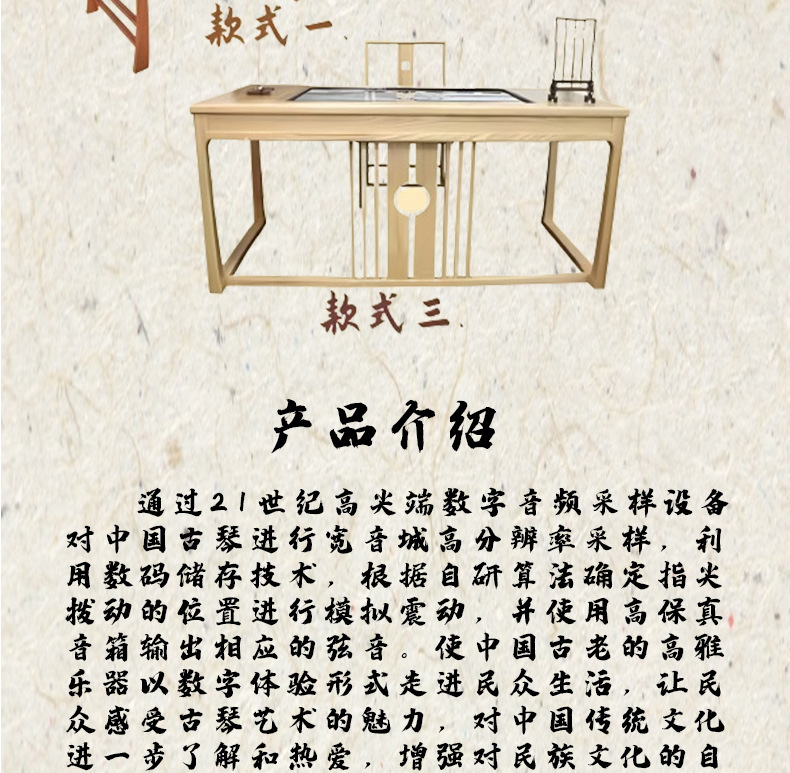 款式一.
款式三.
产品介绍
通过21世纪高尖端数字音频采样设备
对中国古琴进行宽音城高分辨率采样，利
用数码储存技术，根据自研算法确定指尖
拨动的位置进行模拟震动，并使用高保真
音箱输出相应的弦音。使中国古老的高雅
乐器以数字体验形式走进民众生活，让民
众感受古琴艺术的魅力，对中国传统文化
进一步了解和热爱，增强对民族文化的自